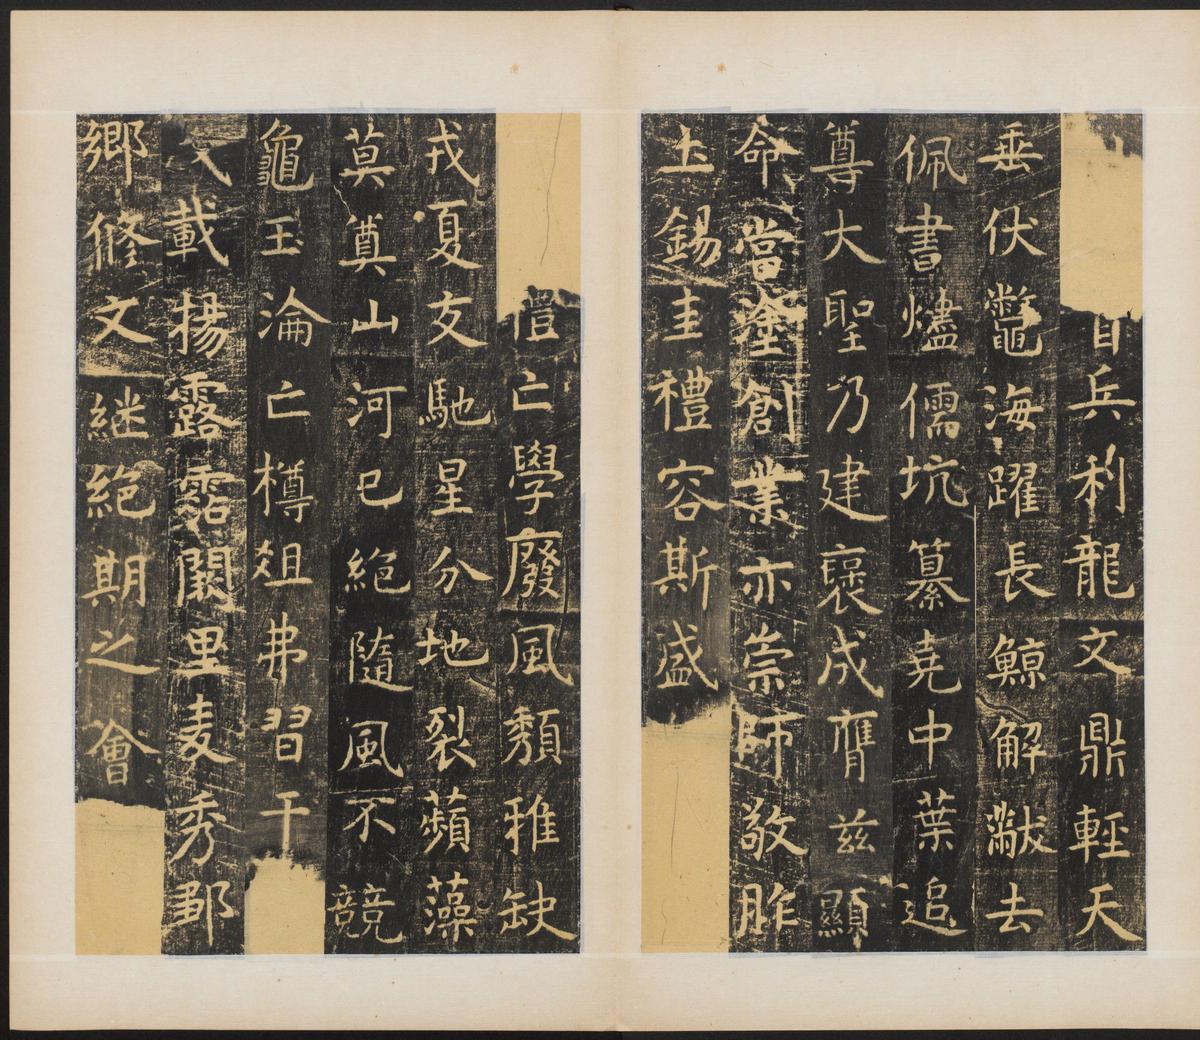 兵利龍文鼎輕天
垂伏鼈海躍長鯨解黻去
佩書燼儒坑纂堯中葉追
尊大聖乃建褒成膺茲顯
命當塗創業亦崇師敬胙
土錫圭禮容斯盛
禮亡學廢風頹雅缺
戎夏交馳星分地裂蘋藻
莫奠山河已絕隨風不競
龜玉淪亡樽俎弗習干
戈載揚露霑闕里麦秀鄒
鄉脩文継絕期之會